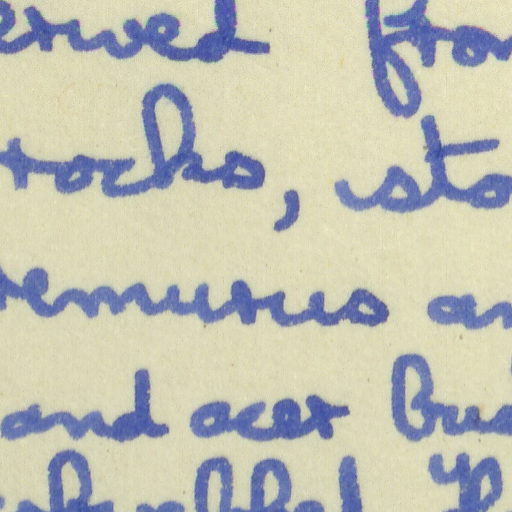 erved from
rocks, sto
remurus an
and acer bud